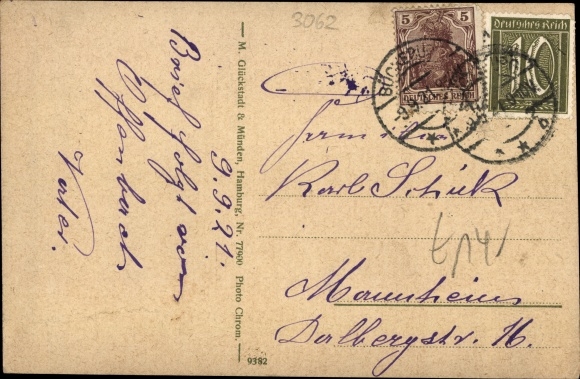 3062
5
DEUTSCHES REICH
Deutsches Reich
10
9.9.21.
Brief folgt von
Offenbach
Vater.
M. Glückstadt & Münden, Hamburg. Nr. 77900 Photo Chrom.
9382
Herrn
Karl Schück
Mannheim
Dalbergstr. 11.